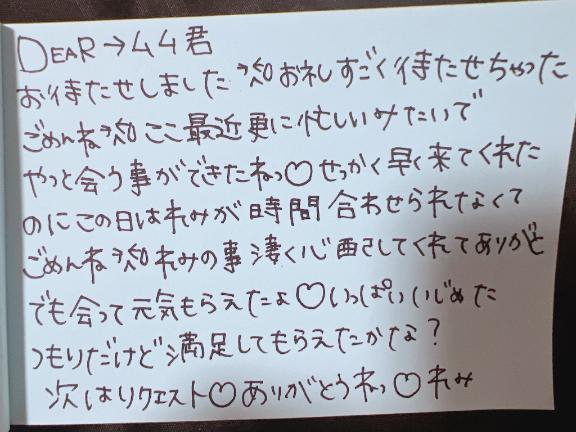 DEAR→ムム君
お待たせしました お礼すごく待たせちゃった
ごめんね ここ最近更に忙しいみたいで
やっと会う事ができたねっ♡せっかく早く来てくれた
のにこの日はれみが時間合わせられなくて
ごめんねれみの事凄く心配してくれてありがと
でも会って元気もらえたよ♡いっぱいいじめた
つもりだけど満足してもらえたかな？
次はリクエスト♡ありがとうねっ♡れみ